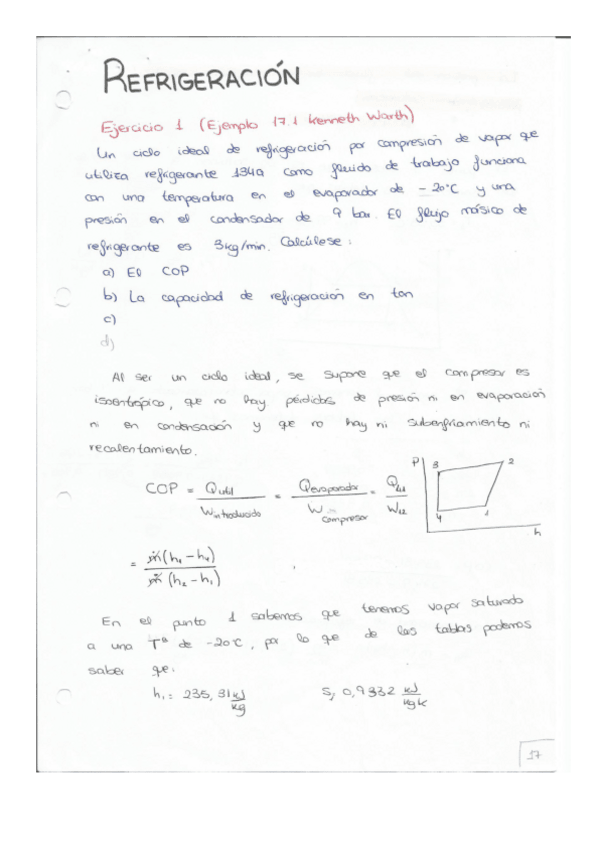 REFRIGERACIÓN
Ejercicio 1 (Ejemplo 17.1 Kenneth Warth)
Un ciclo ideal de refrigeración por compresión de vapor que
utiliza refrigerante 134a como fluido de trabajo funciona
con una temperatura en el evaporador de -20°C y una
presión en el condensador de 9 bar. El flujo másico de
refrigerante es 3kg/min. Calcúlese:
a) El COP
b) La capacidad de refrigeración en ton
c)
d)
Al ser un ciclo ideal, se supone que el compresor es
isoentrópico, que no hay pérdidas de presión ni en evaporación
ni en condensación y que no hay ni subenfriamiento ni
recalentamiento.
COP = Qútil / Wintroducido = Qevaporador / Wcompresor = Q41 / W12
P 3 2 4 1 h
= ṁ(h1 - h4) / ṁ(h2 - h1)
En el punto 1 sabemos que tenemos vapor saturado
a una Tª de -20°C, por lo que de las tablas podemos
saber que:
h1 = 235,31 kJ/kg S1 0,9332 kJ/kgK
17